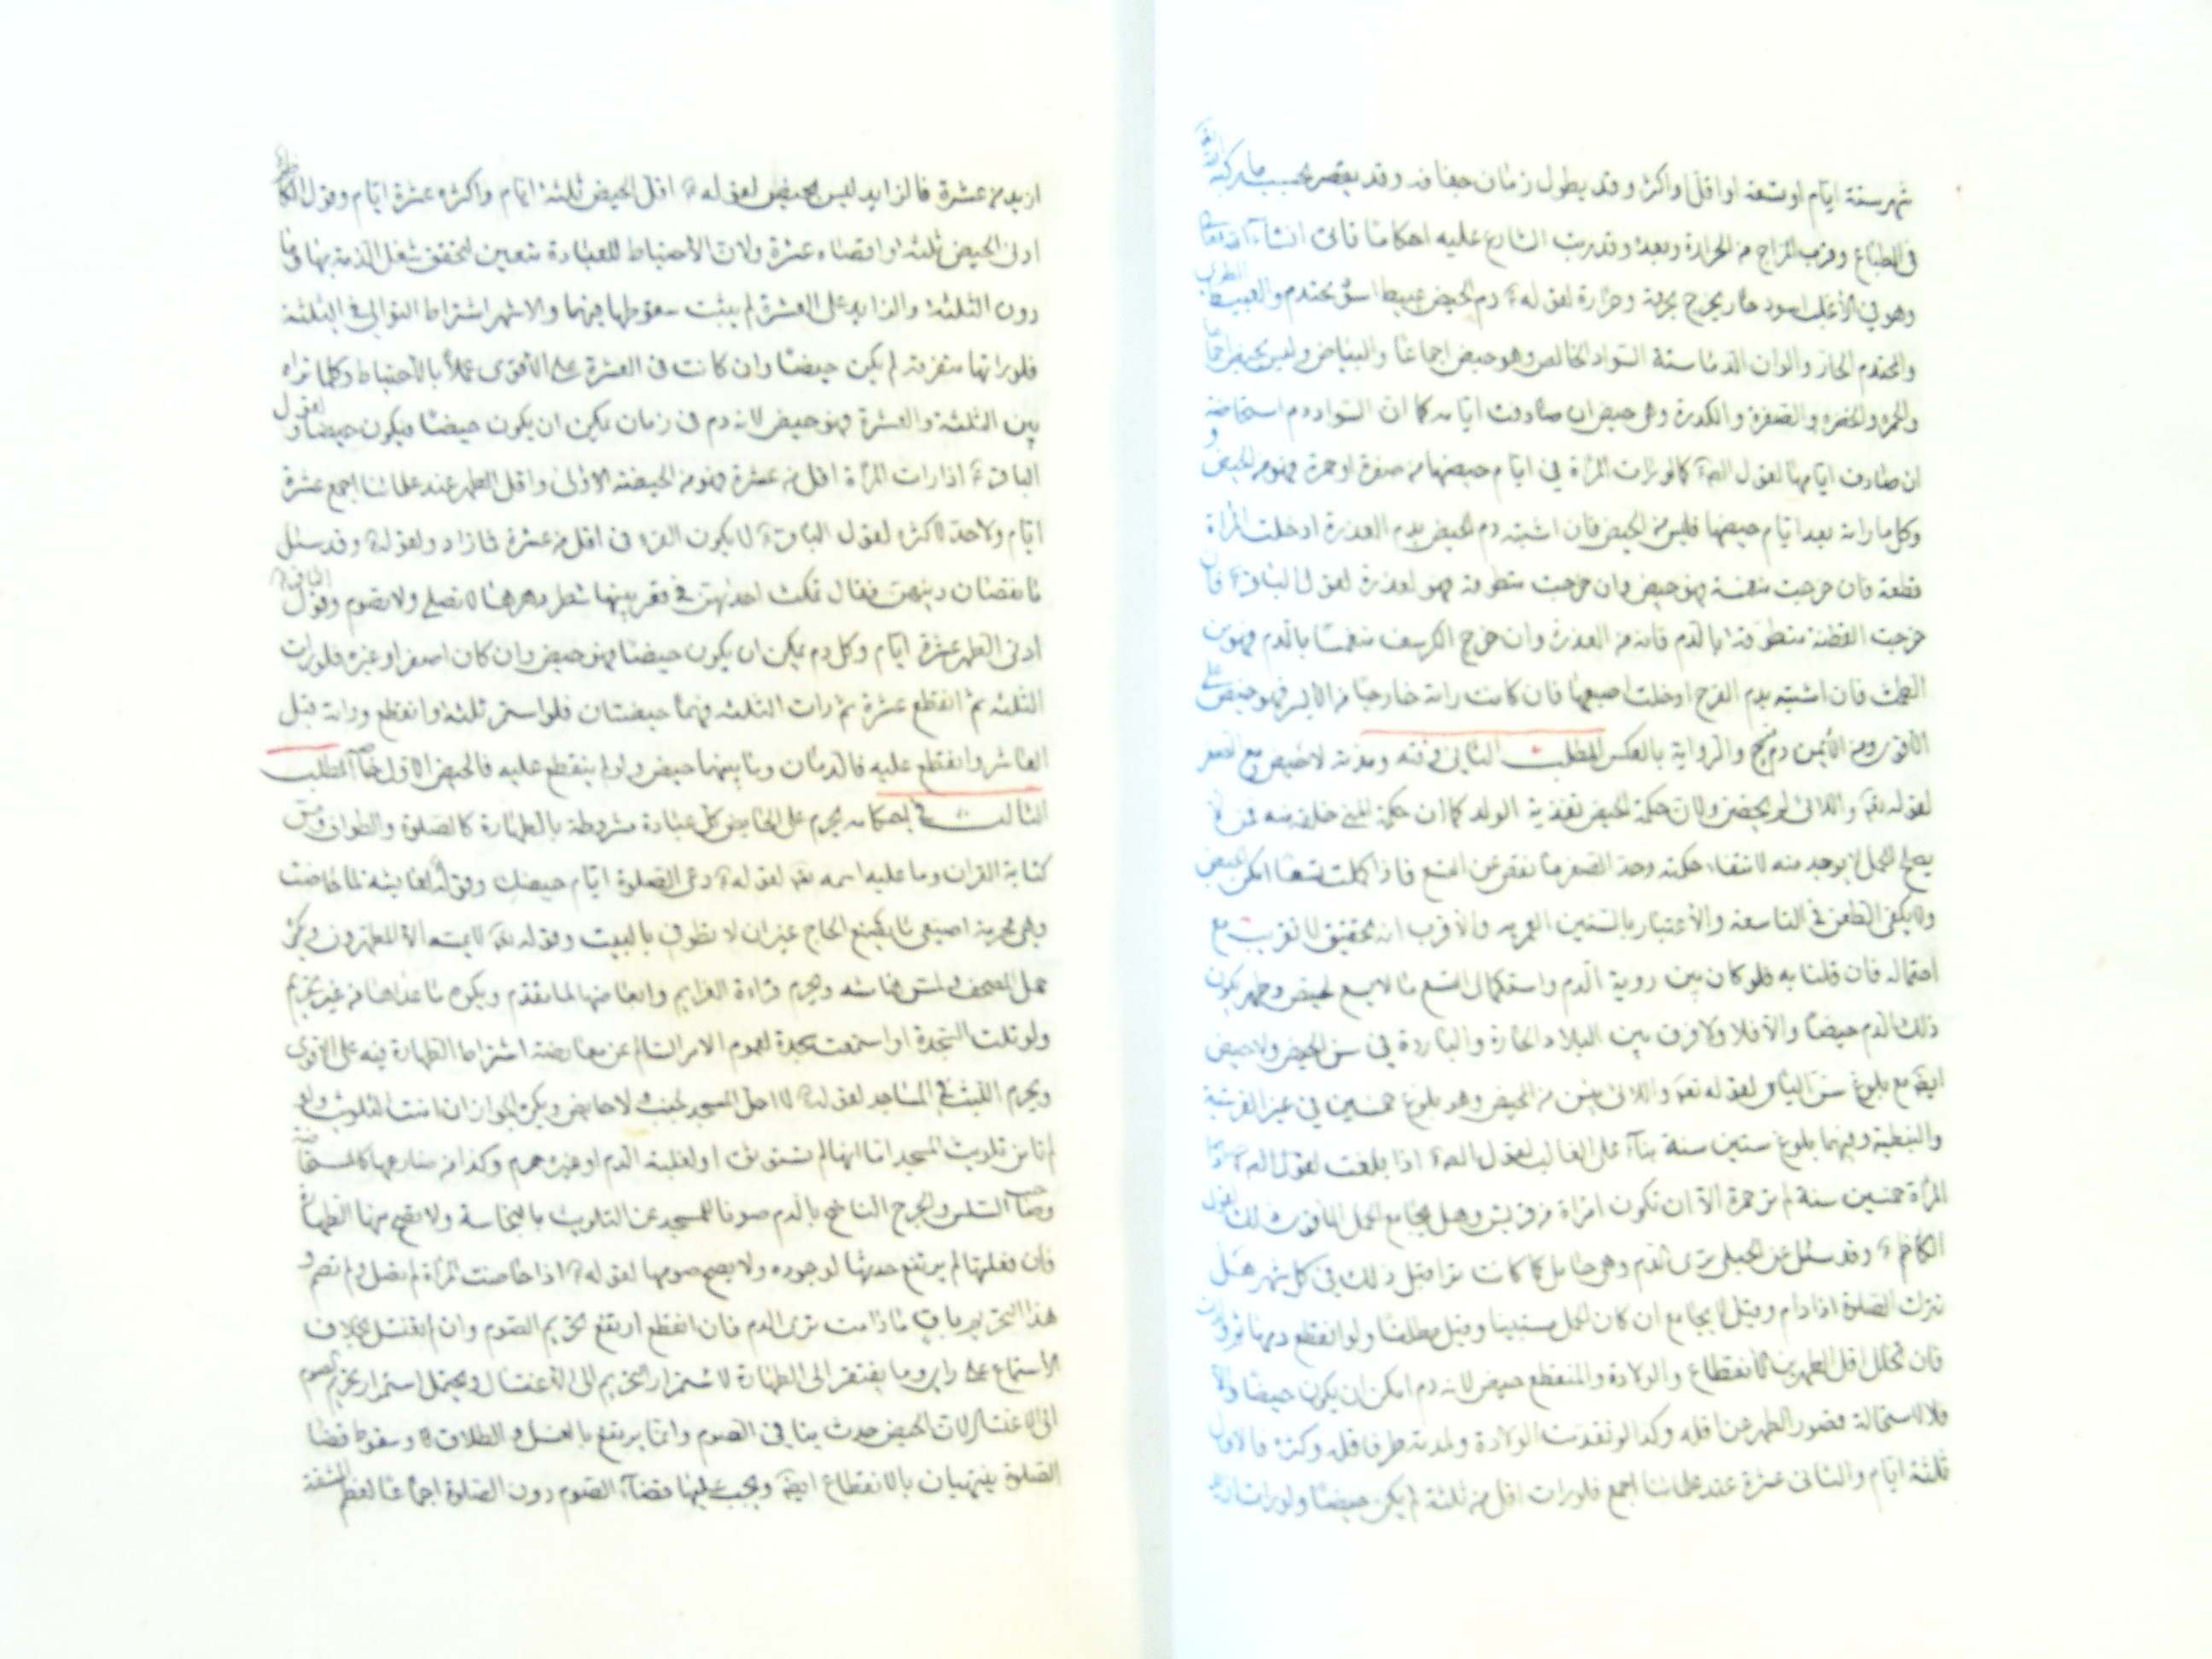 شهر ستة ايام او سبعة او اقل او اكثر و قد يطول زمان جفافه و قد يقصر بحسب ما يركبه الله تعالى
فى الطباع وقرب المزاج من الحرارة وبعده وقد رتب الشارع عليه احكاما تاتى انشاء الله تعالى
وهو فى الأغلب اسود حار يخرج بحرقة وحرارة لقوله ع دم الحيض عبيط اسود محتدم والعبيط الطرى
والمحتدم الحار والوان الدماء ستة السواد الخالص وهو حيض اجماعا والبياض وليس بحيض اجماعا
والحمرة والخضرة والصفرة والكدرة وهى حيض ان صادفت ايامه كما ان السواد دم استحاضة
ان صادف ايامها لقول الص ع كلما رات المرأة فى ايام حيضها من صفرة او حمرة فهو من الحيض و
وكل ما راته بعد ايام حيضها فليس من الحيض فان اشتبه دم الحيض بدم العذرة ادخلت المراة
قطنة فان خرجت منغمسة فهو حيض وان خرجت متطوقة فهو لعذرة لقول الباقر ع فان
خرجت القطنة متطوقة بالدم فانه من العذرة وان خرج الكرسف منغمسا بالدم فهو من
الطمث فان اشتبه بدم القرح ادخلت اصبعها فان كانت راته خارجا من الايسر فهو حيض على
الاقوى ومن الأيمن دم قرح والرواية بالعكس المطلب الثانى فى وقته ومدته لا حيض مع الصغر
لقوله تعالى واللائى لم يحضن ولان حكمة الحيض تغذية الولد كما ان حكمة المنى خلقه منه فمن لا
يصلح للحمل لا يوجد منه لانتفاء حكمته وحد الصغر ما نقص عن التسع فاذا كملت تسعا امكن الحيض
ولا يكفى الطعن فى التاسعة والأعتبار بالسنين القمرية والاقرب انه تحقيق لا تقريب مع
احتماله فان قلنا به فلو كان بين روية الدم واستكمال التسع ما لا يسع لحيض وطهر يكون
ذلك الدم حيضا والا فلا ولا فرق بين البلاد الحارة والباردة فى سن الحيض ولا حيض
ايضا مع بلوغ سن الياس لقوله تعالى واللائى يئسن من المحيض وهو بلوغ خمسين فى غير القرشية
والنبطية وفيهما بلوغ ستين سنة بناء على الغالب لقول الص ع اذا بلغت
المرأة خمسين سنة لم تر حمرة الا ان تكون امراة من قريش وهل يجامع الحمل الاقوى ذلك لقول
الكاظم ع وقد سئل عن الحبلى ترى الدم وهى حامل كما كانت ترا قبل ذلك فى كل شهر هل
تترك الصلوة اذا دام وقيل لا يجامع ان كان الحمل مستبينا وقيل مطلقا ولو انقطع دمها ثم ولدت
فان تخلل اقل الطهر بين الانقطاع والولادة والمنقطع حيض لانه دم امكن ان يكون حيضا والا
فلا لاستحالة قصور الطهر عن اقله وكذا لو تقدمت الولادة ولمدته طرفا قلة وكثرة فالاول
ثلثة ايام والثانى عشرة عند علمائنا اجمع فلو رات اقل من ثلثة لم يكن حيضا ولو رات ازيد
ازيد من عشرة فالزايد ليس بحيض لقوله ع اقل الحيض ثلثة ايام واكثره عشرة ايام وقول الكاظم ع
ادنى الحيض ثلثة واقصاه عشرة ولان الأحتياط للعبادة متعين لتحقق شغل الذمة بها وما
دون الثلثة والزايد على العشرة لم يثبت سقوطها فيهما والاشهر اشتراط التوالى فى الثلثة
فلو راتها متفرقة لم يكن حيضا وان كانت فى العشرة على الأقوى عملا بالأحتياط وكلما تراه
بين الثلثة والعشرة فهو حيض لانه دم فى زمان يمكن ان يكون حيضا فيكون حيضا ولقول
الباقر ع اذا رات المرأة اقل من عشرة فهو من الحيضة الاولى واقل الطهر عند علمائنا اجمع عشرة
ايام ولا حد لاكثره لقول الباقر ع لا يكون القرء فى اقل من عشرة فما زاد ولقوله ع وقد سئل
ما نقصان دينهن فقال تمكث احديهن فى قعر بيتها شطر دهرها لا تصلى ولا تصوم وقول الباقر ع
ادنى الطهر عشرة ايام وكل دم يمكن ان يكون حيضا فهو حيض وان كان اصفر او غيره فلو رات
الثلثة ثم انقطع عشرة ثم رات الثلثة فهما حيضتان فلو استمر ثلثة وانقطع وراته قبل
العاشر وانقطع عليه فالدمان وما بينهما حيض ولو لم ينقطع عليه فالحيض الاول خاصة المطلب
الثالث فى احكامه يحرم على الحايض كل عبادة مشروطة بالطهارة كالصلوة والطواف ومس
كتابة القران وما عليه اسمه تعالى لقوله ع دعى الصلوة ايام حيضك وقوله لعايشة لما حاضت
وهى محرمة اصنعى ما يصنع الحاج غير ان لا تطوفى بالبيت وقوله تعالى لا يمسه الا المطهرون ويكره
حمل المصحف ولمس هامشه ويحرم قراءة العزايم وابعاضها لما تقدم ويكره ما عداها من غير تحريم
ولو تلت السجدة او استمعت سجدة لعموم الامر السالم عن معارضة اشتراط الطهارة فيه على الاقوى
ويحرم اللبث فى المساجد لقوله ع لا احل المسجد لجنب ولا حايض ويكره الجواز ان امنت التلويث ولو
لم تامن تلويث المسجد اما انها لم تستوثق او لغلبة الدم او غيره حرم وكذا من ضارعها كالمستحاضة
وصاحب السلس والجرح الناضح بالدم صونا للمسجد عن التلويث بالنجاسة ولا تصح منها الطهارة
فان فعلتها لم يرتفع حدثها لوجوده ولا يصح صومها لقوله ع اذا حاضت المرأة لم تصل ولم تصم و
هذا التحريم باق ما دامت ترى الدم فان انقطع ارتفع تحريم الصوم وان لم تغتسل بخلاف
الأستمتاع على راى وما يفتقر الى الطهارة لاستمرار التحريم الى الاغتسال ويحتمل استمرار تحريم الصوم
الى الاغتسال لان الحيض حدث ينافى الصوم وانما يرتفع بالغسل والطلاق وسقوط قضاء
الصلوة ينتهيان بالانقطاع ايضا ويجب عليها قضاء الصوم دون الصلوة اجماعا لعظم المشقة